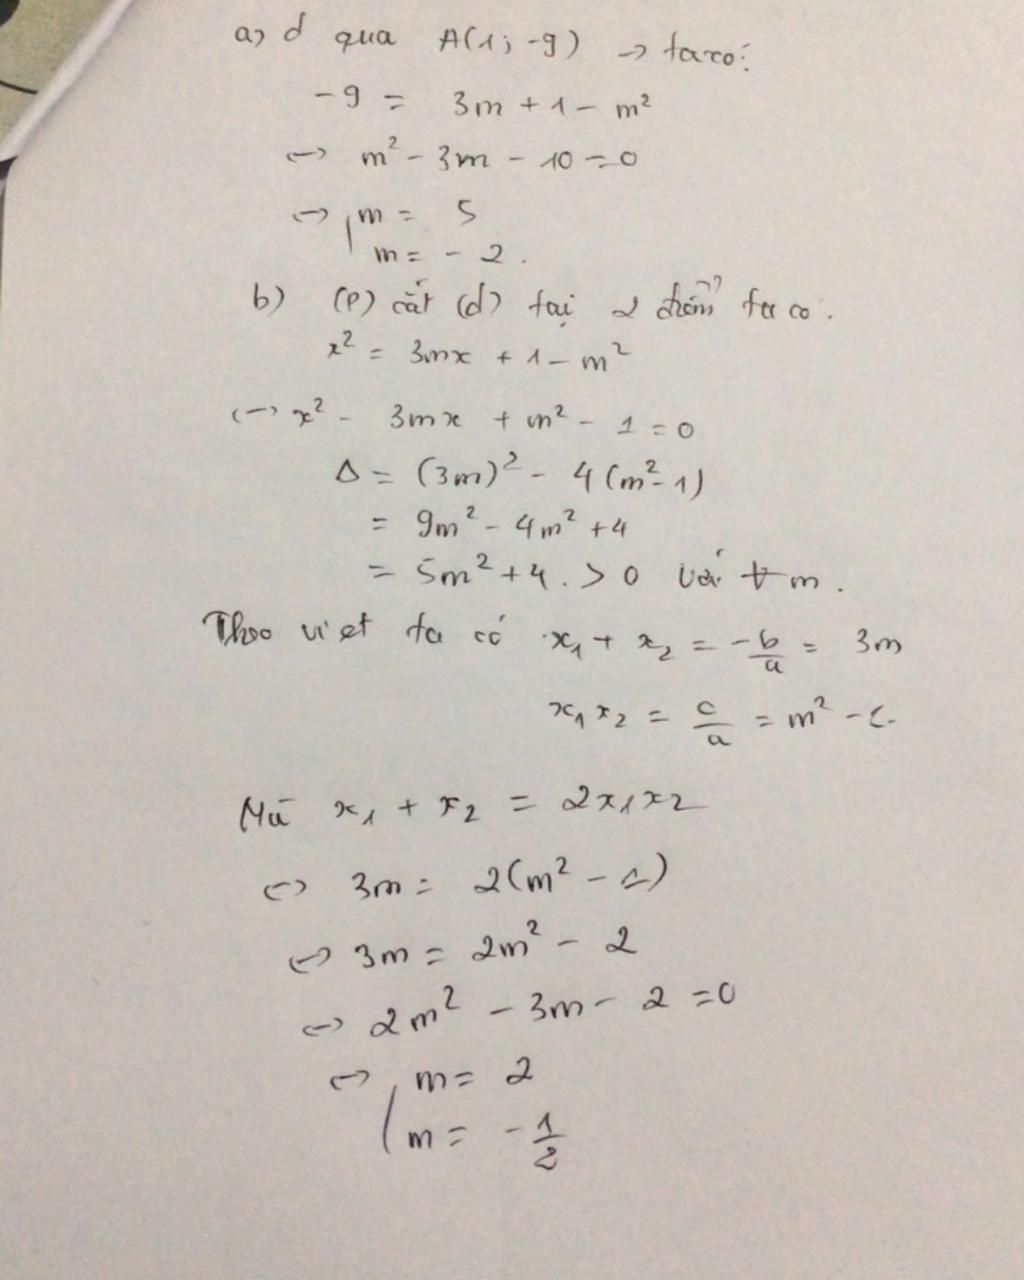 a) d qua A(1; -9) → ta có:
-9 = 3m + 1 - m²
↔ m² - 3m - 10 = 0
↔ [m = 5
m = -2.
b) (P) cắt (d) tại 2 điểm ta co.
x² = 3mx + 1 - m²
↔ x² - 3mx + m² - 1 = 0
Δ = (3m)² - 4(m² - 1)
= 9m² - 4m² + 4
= 5m² + 4. > 0 với ∀m.
Theo viet ta có x₁ + x₂ = -b/a = 3m
x₁x₂ = c/a = m² - 1.
Mà x₁ + x₂ = 2x₁x₂
↔ 3m = 2(m² - 1)
↔ 3m = 2m² - 2
↔ 2m² - 3m - 2 = 0
↔ [m = 2
m = -1/2